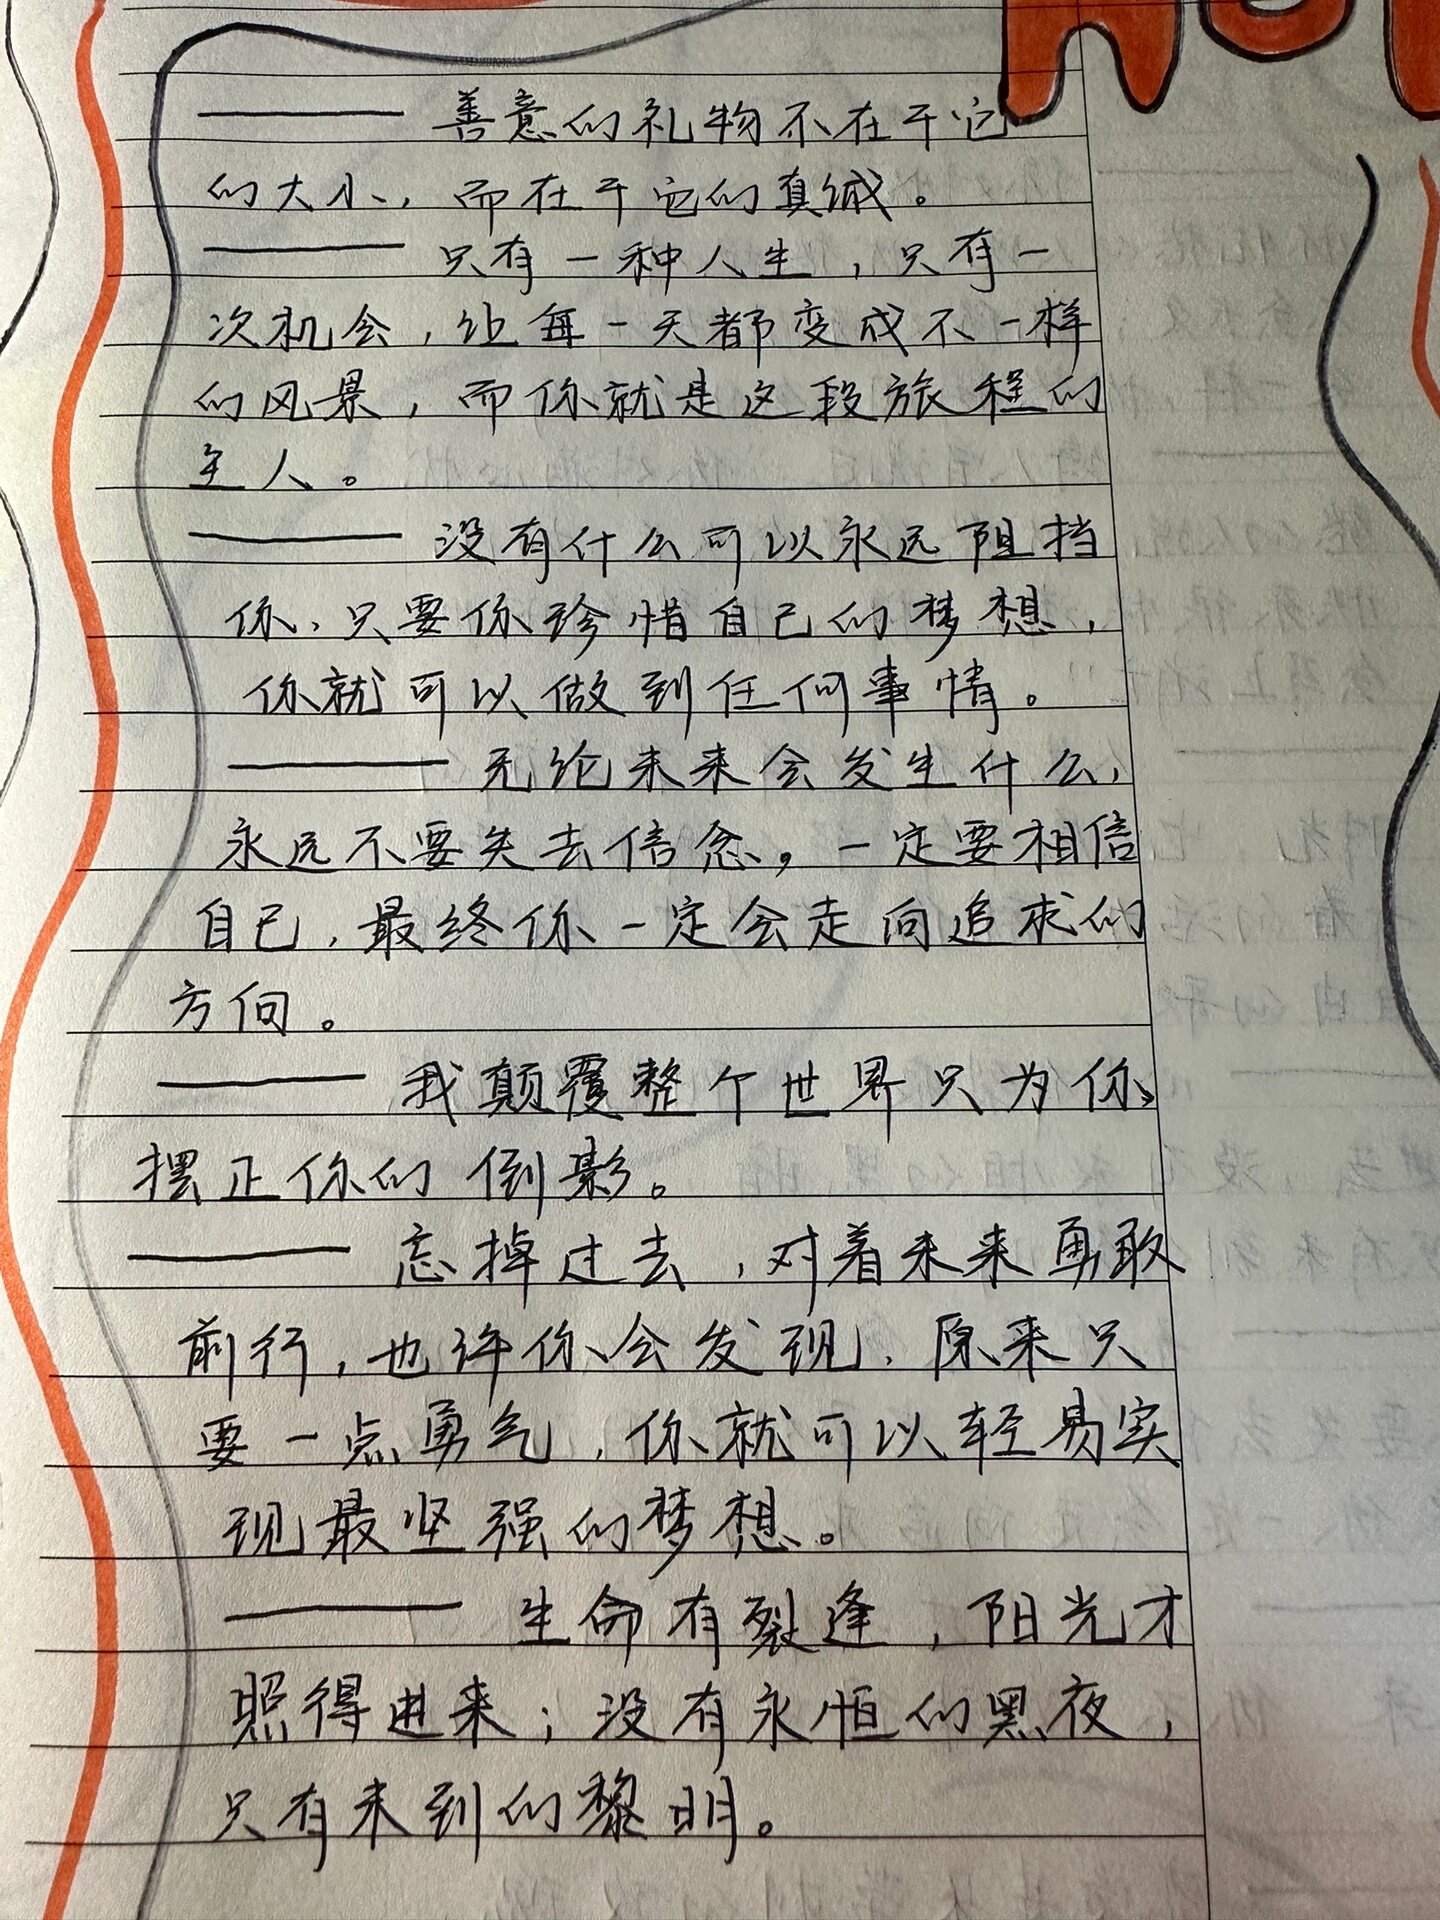 ——— 善意的礼物不在于它
的大小，而在于它们真诚。
——— 只有一种人生，只有一
次机会，让每一天都变成不一样
的风景，而你就是这段旅程的
主人。
——— 没有什么可以永远阻挡
你，只要你珍惜自己的梦想，
你就可以做到任何事情。
——— 无论未来会发生什么，
永远不要失去信念，一定要相信
自己，最终你一定会走向追求的
方向。
——— 我颠覆整个世界只为你、
摆正你们倒影。
——— 忘掉过去，对着未来勇敢
前行，也许你会发现，原来只
要一点勇气，你就可以轻易实
现最坚强的梦想。
——— 生命有裂逢，阳光才
照得进来；没有永恒的黑夜，
只有未到的黎明。